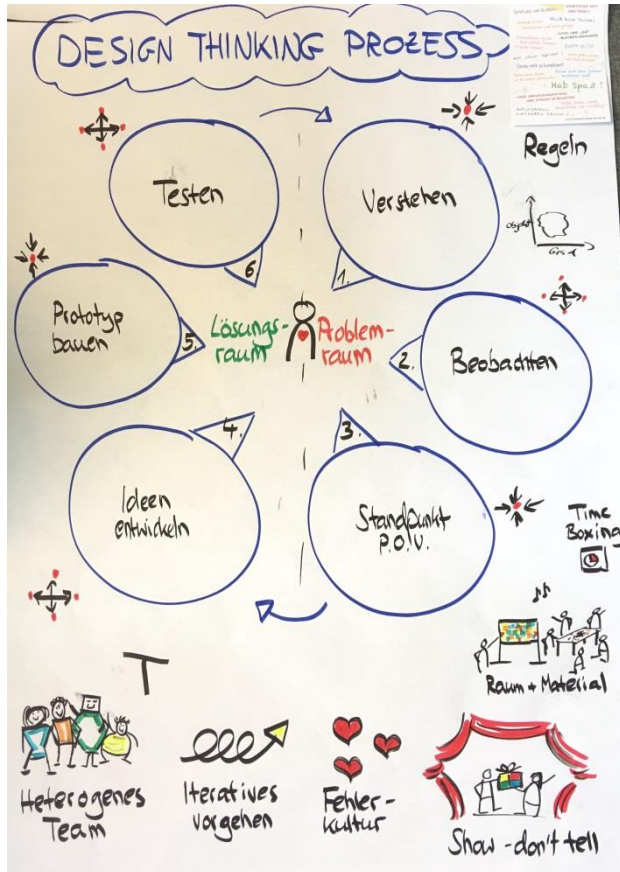 DESIGN THINKING PROZESS
Hab Spaß!
Regeln
Objekt
Grad
Testen
6.
Verstehen
1.
Prototyp
bauen
5.
Lösungs-
raum
Problem-
raum
2.
Beobachten
4.
Ideen
entwickeln
3.
Standpunkt
P.O.V.
Time
Boxing
T
Raum + Material
Heterogenes
Team
Iteratives
vorgehen
Fehler-
kultur
Show - don't tell